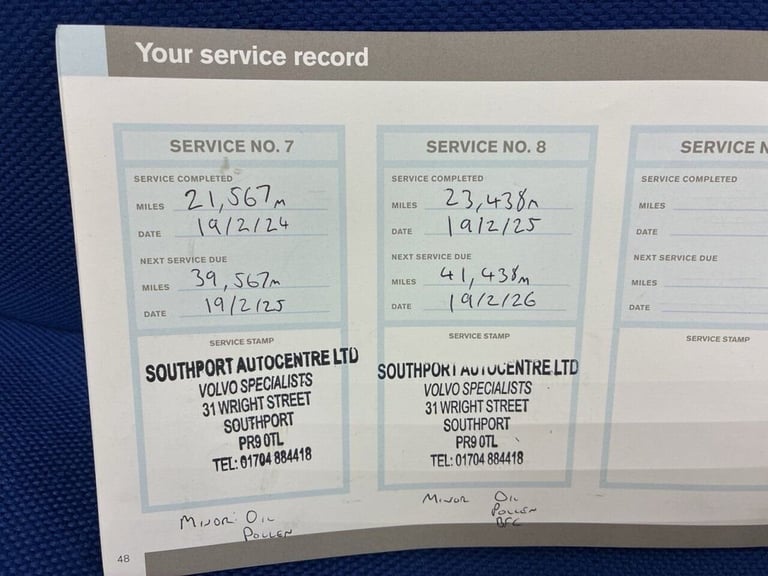 Your service record
SERVICE NO. 7
SERVICE COMPLETED
MILES 21,567m
DATE 19/2/24
NEXT SERVICE DUE
MILES 39,567m
DATE 19/2/25
SERVICE STAMP
SOUTHPORT AUTOCENTRE LTD
VOLVO SPECIALISTS
31 WRIGHT STREET
SOUTHPORT
PR9 0TL
TEL: 01704 884418
MINOR: OIL
POLLEN
SERVICE NO. 8
SERVICE COMPLETED
MILES 23,438m
DATE 19/2/25
NEXT SERVICE DUE
MILES 41,438m
DATE 19/2/26
SERVICE STAMP
SOUTHPORT AUTOCENTRE LTD
VOLVO SPECIALISTS
31 WRIGHT STREET
SOUTHPORT
PR9 0TL
TEL: 01704 884418
MINOR OIL
POLLEN
BFC
SERVICE N
SERVICE COMPLETED
MILES
DATE
NEXT SERVICE DUE
MILES
DATE
SERVICE STAMP
48